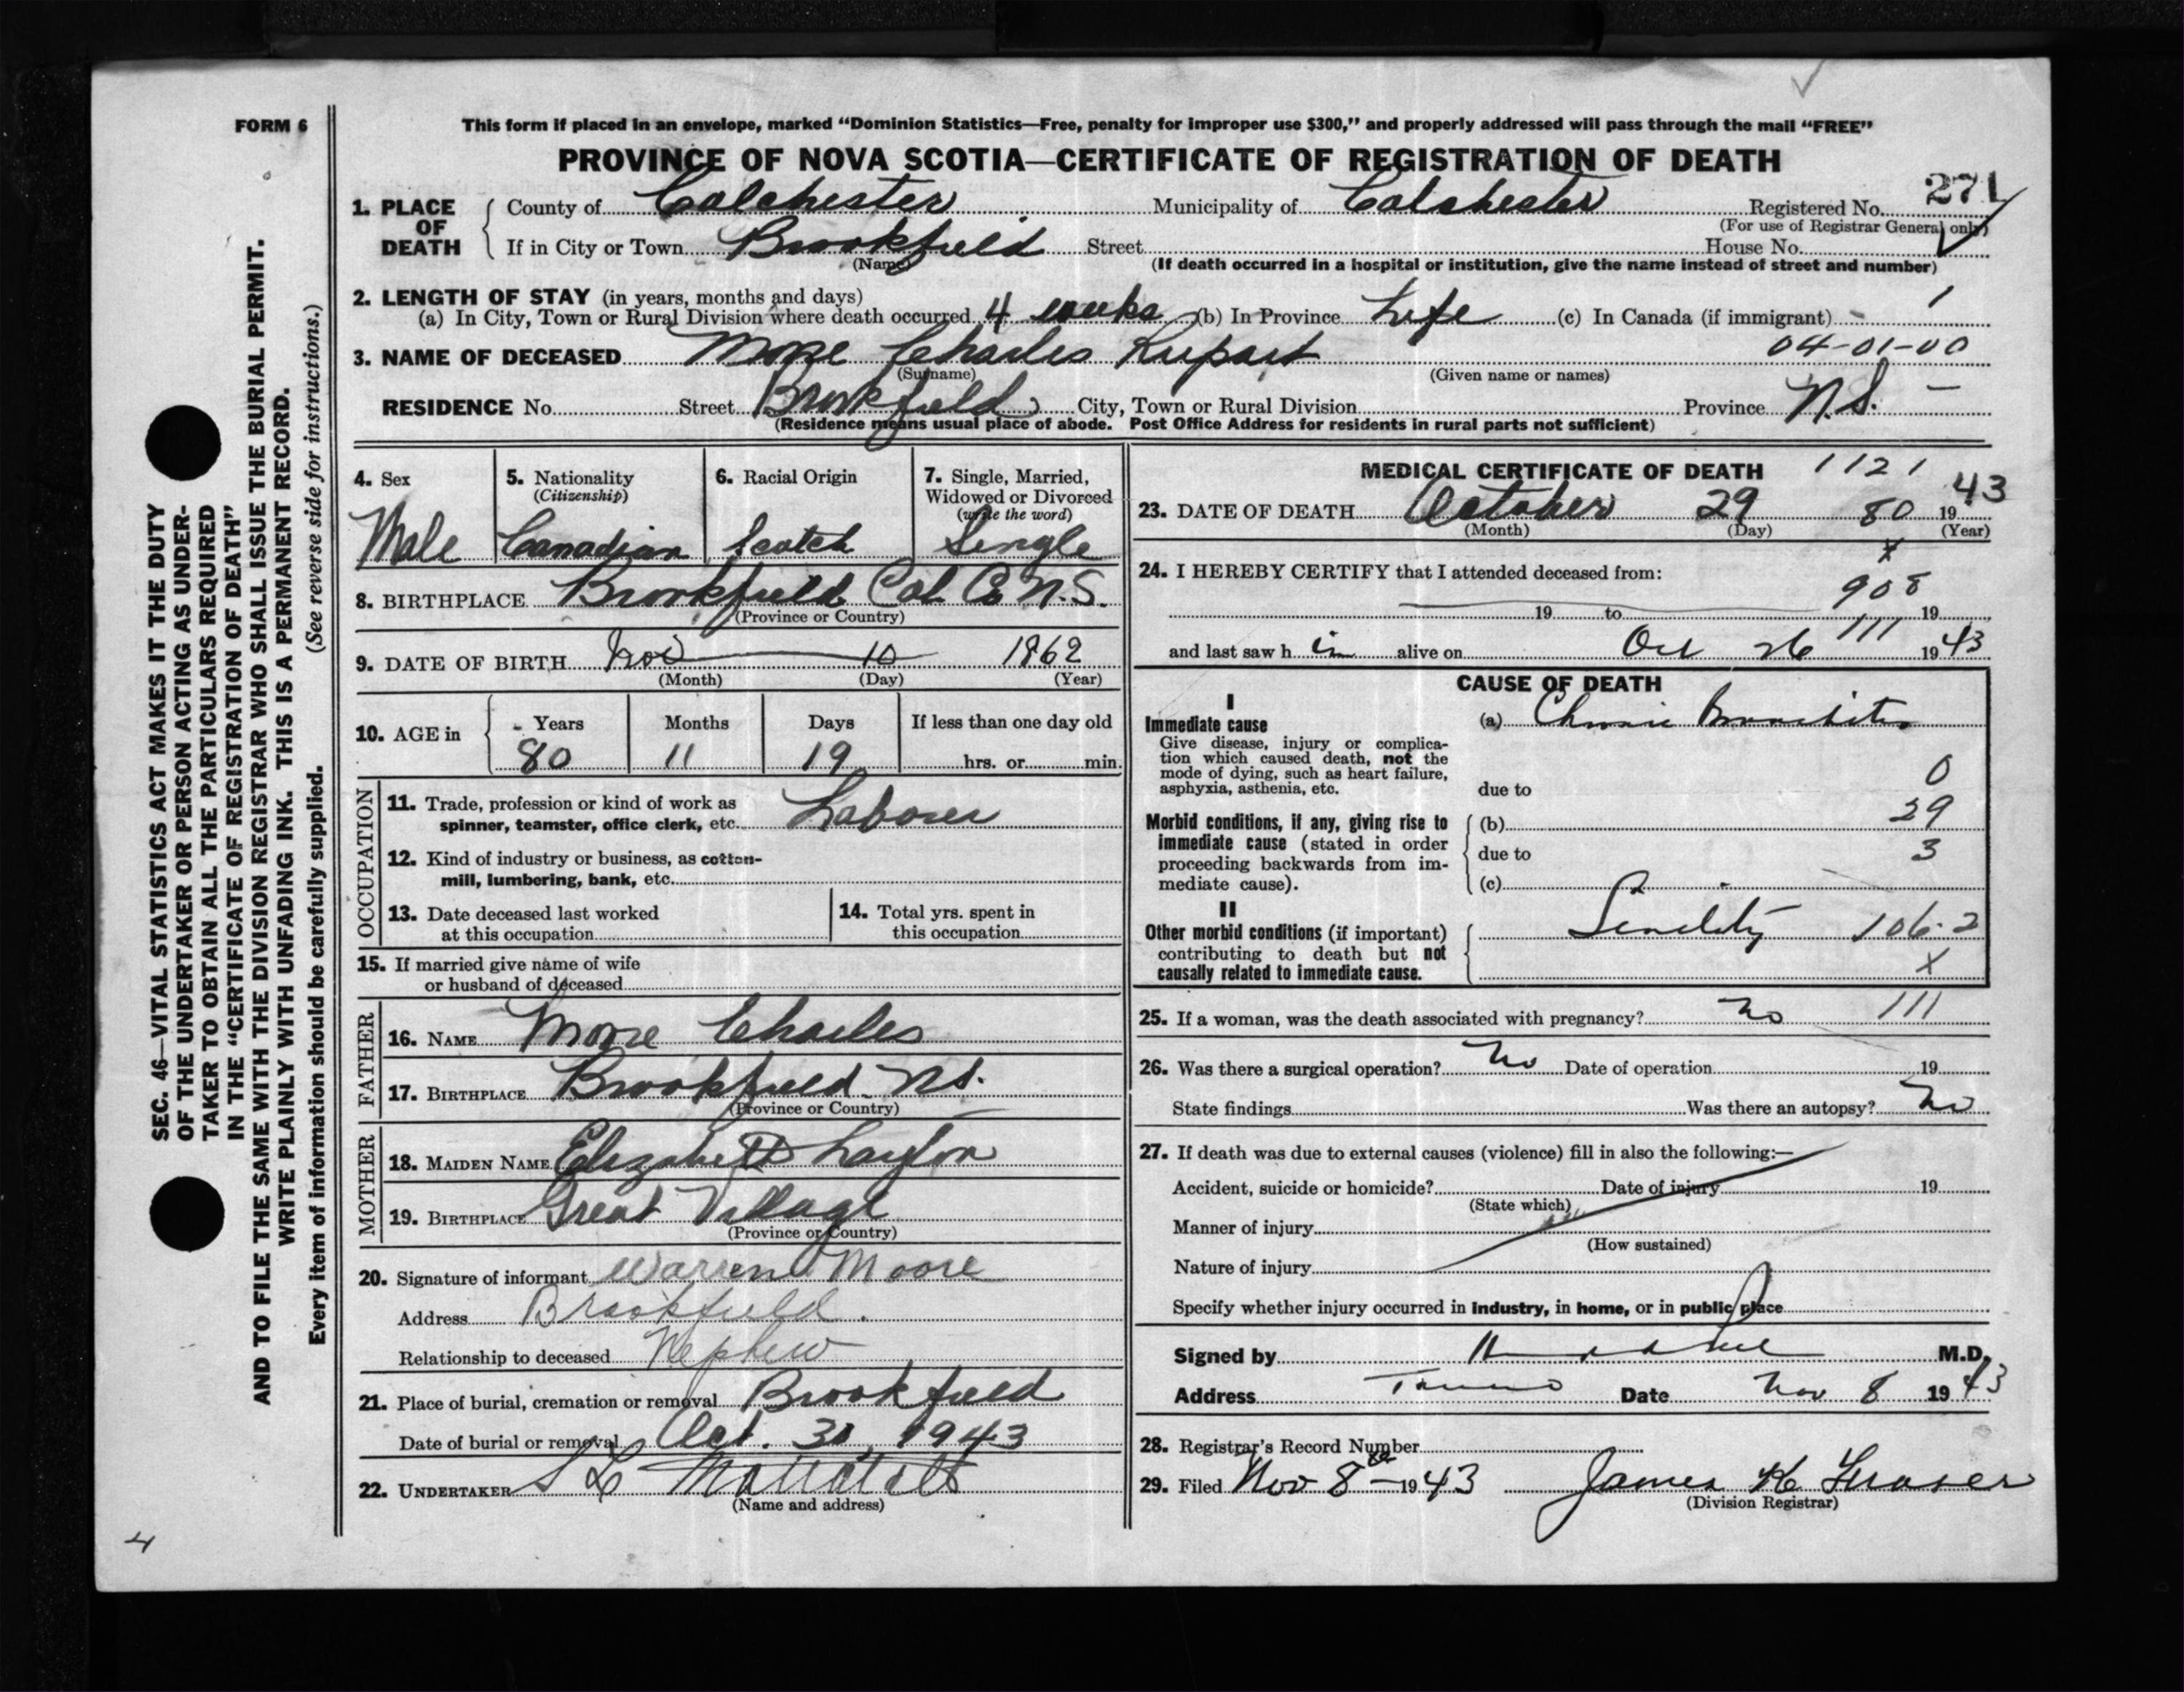 FORM 6
This form if placed in an envelope, marked “Dominion Statistics—Free, penalty for improper use $300,” and properly addressed will pass through the mail “FREE”
PROVINCE OF NOVA SCOTIA—CERTIFICATE OF REGISTRATION OF DEATH
1. PLACE OF DEATH County of Colchester Municipality of Colchester Registered No. 271
(For use of Registrar General only)
If in City or Town Brookfield Street House No.
(Name) (If death occurred in a hospital or institution, give the name instead of street and number)
2. LENGTH OF STAY (in years, months and days)
(a) In City, Town or Rural Division where death occurred 4 weeks (b) In Province Life (c) In Canada (if immigrant) - 1
3. NAME OF DECEASED Moore Charles Rupart 04-01-00
(Surname) (Given name or names)
RESIDENCE No. Street Brookfield City, Town or Rural Division Province N.S. —
(Residence means usual place of abode. Post Office Address for residents in rural parts not sufficient)
4. Sex Male
5. Nationality (Citizenship) Canadian
6. Racial Origin Scotch
7. Single, Married, Widowed or Divorced (write the word) Single
8. BIRTHPLACE Brookfield Col. Co N.S.
(Province or Country)
9. DATE OF BIRTH Nov 10 1862
(Month) (Day) (Year)
10. AGE in Years Months Days If less than one day old
80 11 19 hrs. or min.
OCCUPATION
11. Trade, profession or kind of work as
spinner, teamster, office clerk, etc. Laborer
12. Kind of industry or business, as cotton-
mill, lumbering, bank, etc.
13. Date deceased last worked
at this occupation
14. Total yrs. spent in
this occupation
15. If married give name of wife
or husband of deceased
FATHER
16. NAME Moore Charles
17. BIRTHPLACE Brookfield N.S.
(Province or Country)
MOTHER
18. MAIDEN NAME Elizabeth Layton
19. BIRTHPLACE Great Village
(Province or Country)
20. Signature of informant Warren Moore
Address Brookfield.
Relationship to deceased Nephew
21. Place of burial, cremation or removal Brookfield
Date of burial or removal Oct. 30, 1943
22. UNDERTAKER S L
(Name and address)
MEDICAL CERTIFICATE OF DEATH 1121
23. DATE OF DEATH October 29 80 1943
(Month) (Day) (Year)
24. I HEREBY CERTIFY that I attended deceased from:
19 to 908 19
and last saw h im alive on Oct 26 111 1943
CAUSE OF DEATH
I
Immediate cause (a) Chronic Bronchitis
Give disease, injury or complica-
tion which caused death, not the
mode of dying, such as heart failure,
asphyxia, asthenia, etc. due to 0
Morbid conditions, if any, giving rise to (b) 29
immediate cause (stated in order due to 3
proceeding backwards from im-
mediate cause). (c)
II
Other morbid conditions (if important) Senility 106.2
contributing to death but not
causally related to immediate cause. X
25. If a woman, was the death associated with pregnancy? No 111
26. Was there a surgical operation? No Date of operation 19
State findings Was there an autopsy? No
27. If death was due to external causes (violence) fill in also the following:—
Accident, suicide or homicide? Date of injury 19
(State which)
Manner of injury
(How sustained)
Nature of injury
Specify whether injury occurred in industry, in home, or in public place
Signed by M.D.
Address Truro Date Nov 8 1943
28. Registrar's Record Number
29. Filed Nov 8th 1943 James K Fraser
(Division Registrar)
SEC. 46—VITAL STATISTICS ACT MAKES IT THE DUTY
OF THE UNDERTAKER OR PERSON ACTING AS UNDER-
TAKER TO OBTAIN ALL THE PARTICULARS REQUIRED
IN THE “CERTIFICATE OF REGISTRATION OF DEATH”
AND TO FILE THE SAME WITH THE DIVISION REGISTRAR WHO SHALL ISSUE THE BURIAL PERMIT.
WRITE PLAINLY WITH UNFADING INK. THIS IS A PERMANENT RECORD.
Every item of information should be carefully supplied. (See reverse side for instructions.)
4